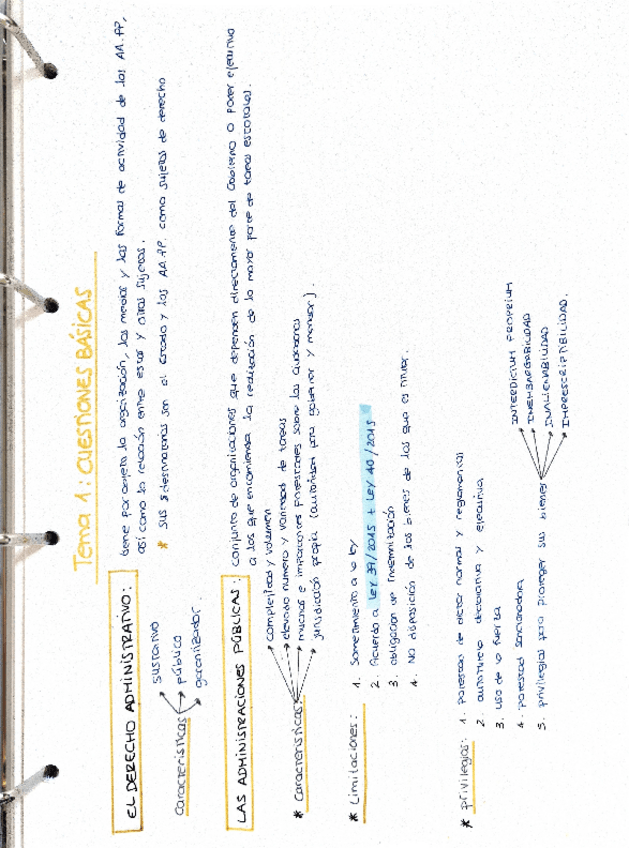 Tema 1: CUESTIONES BÁSICAS
EL DERECHO ADMINISTRATIVO: tiene por objeto la organización, los medios y las formas de actividad de las AA.PP,
así como la relación entre estas y otros sujetos.
* sus destinatarios son el Estado y las AA.PP. como sujetos de derecho
características
sustantivo
público
garantizador.
LAS ADMINISTRACIONES PÚBLICAS: conjunto de organizaciones que dependen directamente del Gobierno o poder ejecutivo
a los que encomienda la realización de la mayor parte de tareas estatales.
* Características:
complejidad y volumen
elevado número y variedad de tareas
muchas e importantes potestades sobre los ciudadanos
jurisdicción propia (autoridad para gobernar y mandar).
* Limitaciones:
1. Sometimiento a la ley
2. Acuerdo a Ley 39/2015 + Ley 40/2015
3. obligación de indemnización
4. No disposición de los bienes de los que es titular.
* privilegios:
1. potestad de dictar normas y reglamentos
2. autotutela declarativa y ejecutiva
3. uso de la fuerza
4. potestad sancionadora
5. privilegios para proteger sus bienes
INTERDICTUM PROPRIUM
INEMBARGABILIDAD
INALIENABILIDAD
IMPRESCRIPTIBILIDAD.